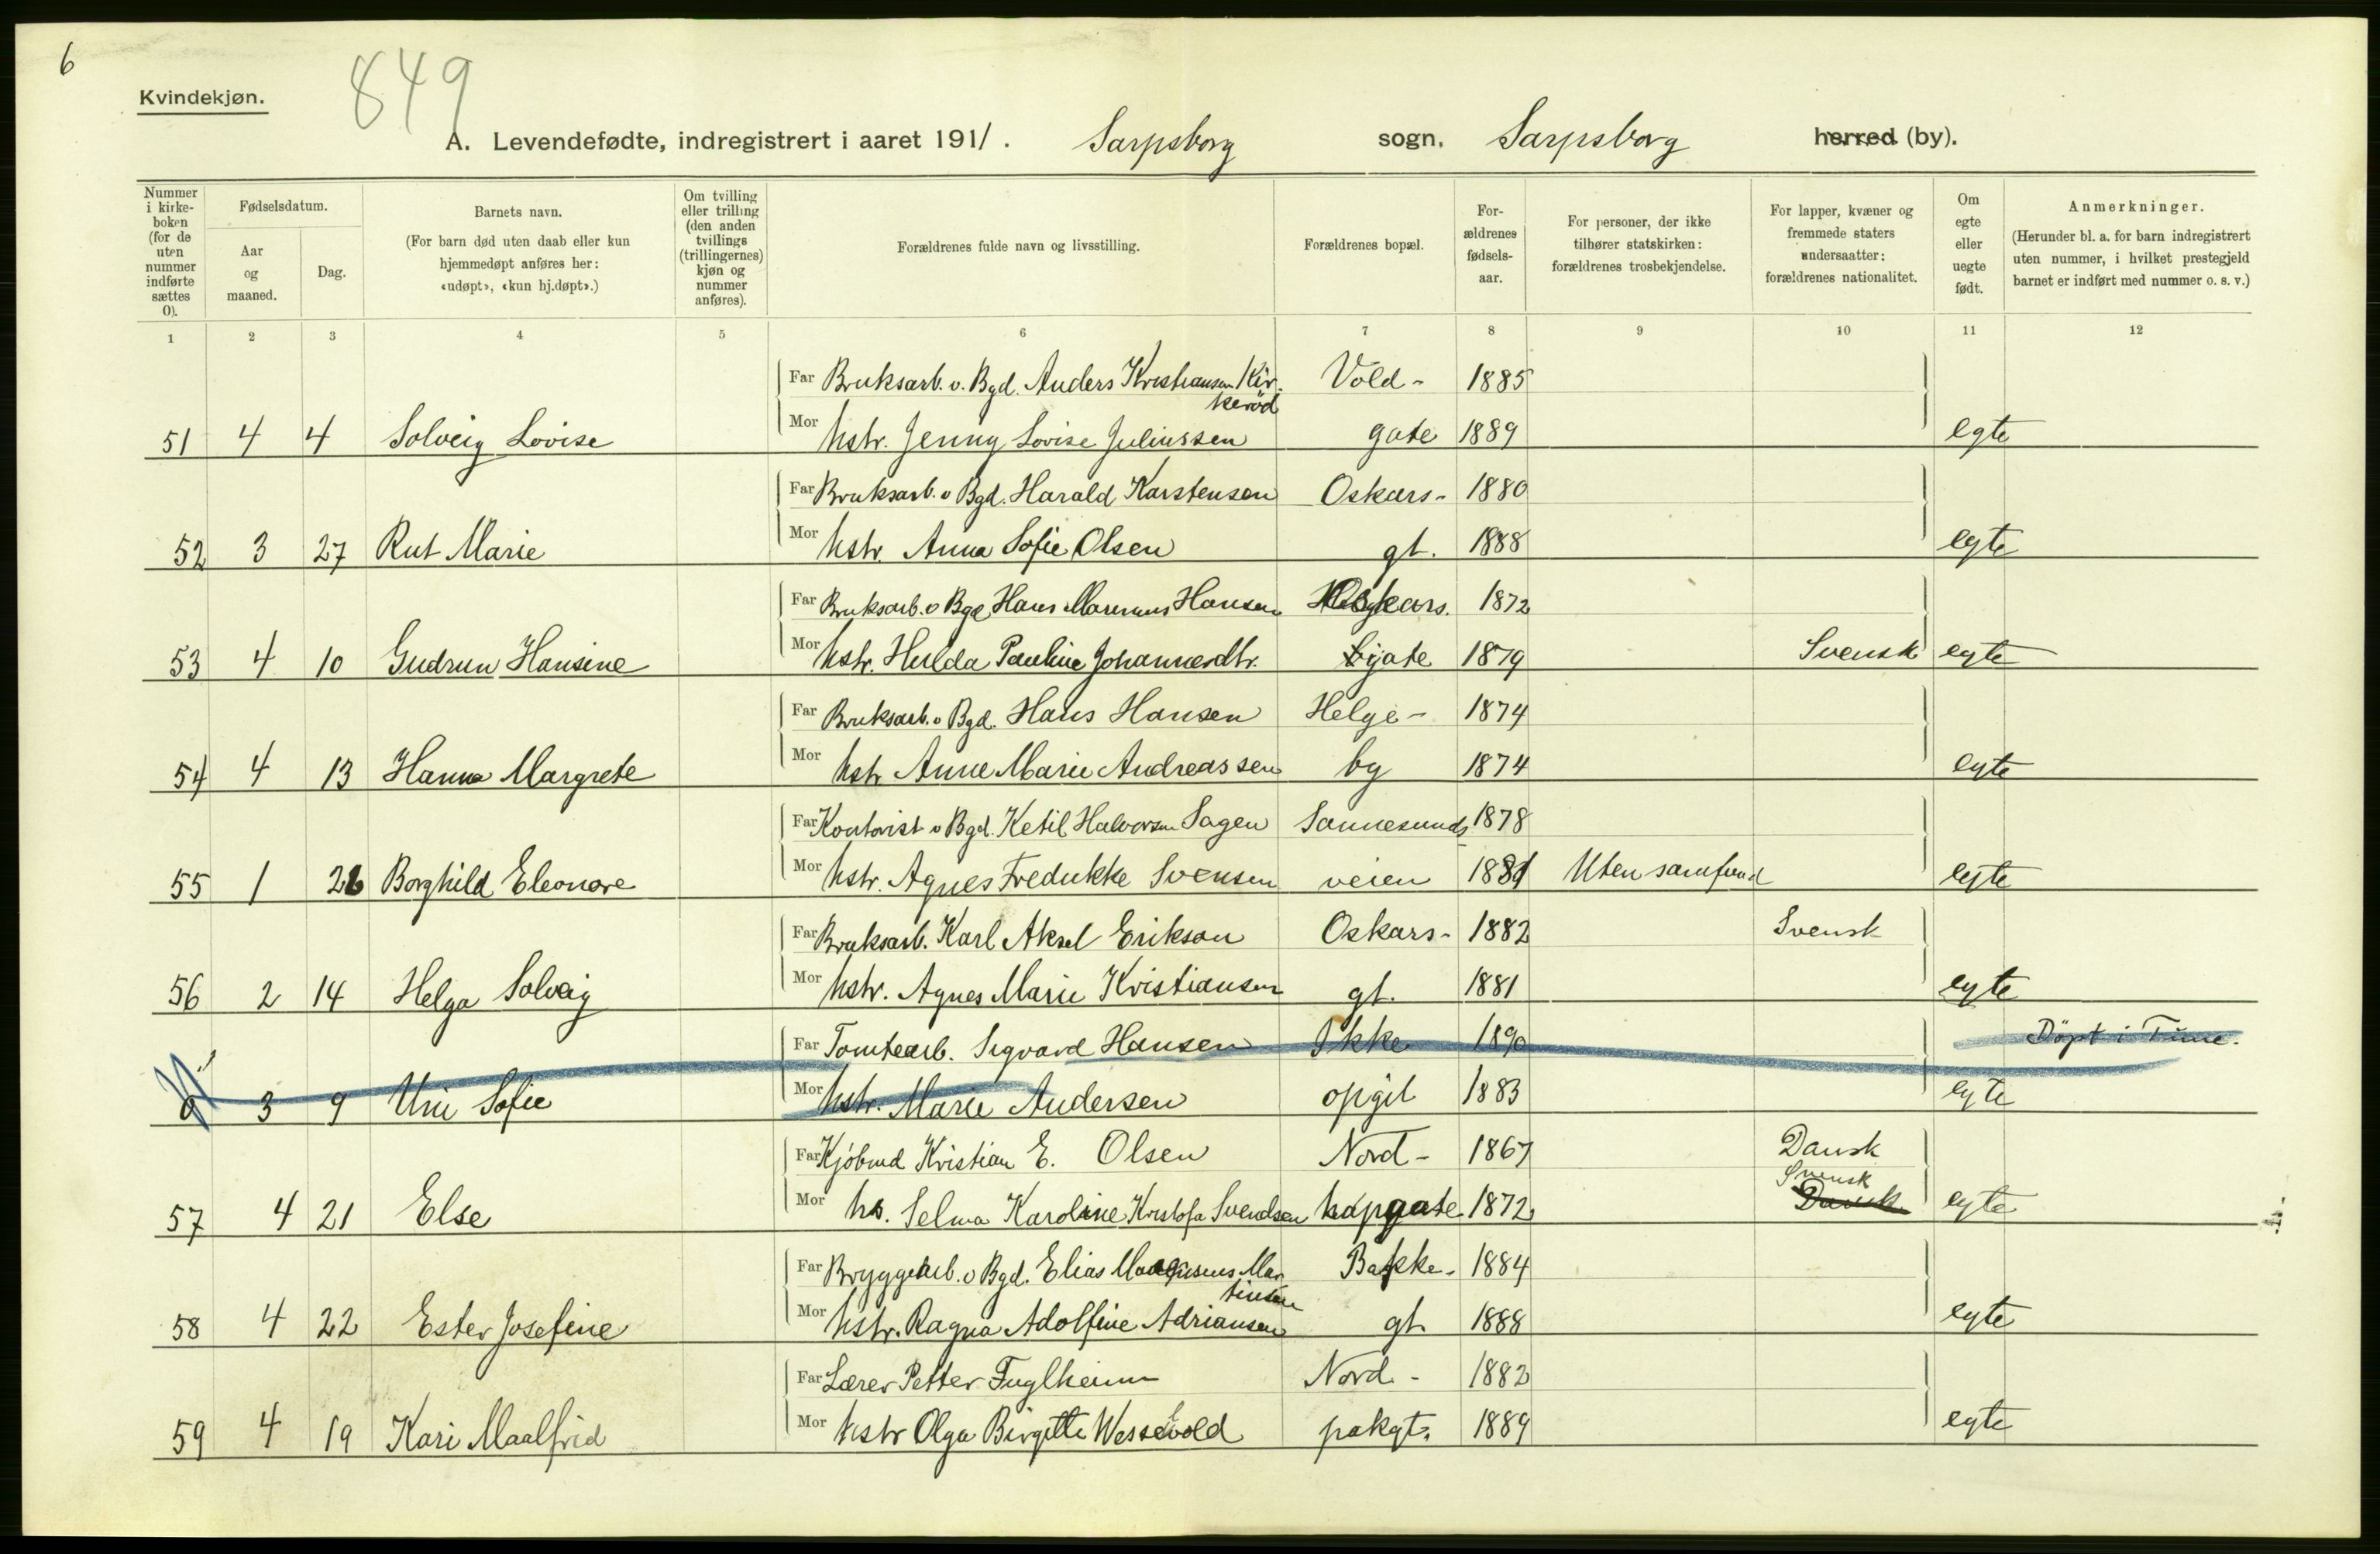 6
849
Kvindekjøn.
A. Levendefødte, indregistrert i aaret 1911. Sarpsborg sogn, Sarpsborg herred (by).
Nummer i kirkeboken (for de uten nummer indførte sættes 0).
Fødselsdatum.
Aar og maaned.
Dag.
Barnets navn.
(For barn død uten daab eller kun hjemmedøpt anføres her: «udøpt», «kun hj.døpt».)
Om tvilling eller trilling (den anden tvillings (trillingernes) kjøn og nummer anføres).
Forældrenes fulde navn og livsstilling.
Forældrenes bopæl.
Forældrenes fødselsaar.
For personer, der ikke tilhører statskirken: forældrenes trosbekjendelse.
For lapper, kvæner og fremmede staters undersaatter: forældrenes nationalitet.
Om egte eller uegte født.
Anmerkninger.
(Herunder bl. a. for barn indregistrert uten nummer, i hvilket prestegjeld barnet er indført med nummer o. s. v.)
1 2 3 4 5 6 7 8 9 10 11 12
Far Bruksarb. v. Bgd. Anders Kristiansen Kirkerød Vold- 1885
51 4 4 Solveig Lovise Mor hstr. Jenny Lovise Juliussen gate 1889 egte
Far Bruksarb. v Bgd. Harald Karstensen Oskars- 1880
52 3 27 Rut Marie Mor hstr. Anna Sofie Olsen gt. 1888 egte
Far Bruksarb. v Bgd Hans Marinius Hansen Oskars. 1872
53 4 10 Gudrun Hansine Mor hstr. Hulda Pauline Johannesdtr. gate 1879 Svensk egte
Far Bruksarb. v Bgd. Hans Hansen Helge- 1874
54 4 13 Hanna Margrete Mor hstr Anne Marie Andreassen by 1874 egte
Far Kontorist v Bgd. Ketil Halvorsen Sagen Sannesunds 1878
55 1 26 Borghild Eleonore Mor hstr. Agnes Fredrikke Svensen veien 1881 Uten samfund egte
Far Bruksarb. Karl Aksel Erikson Oskars- 1882 Svensk
56 2 14 Helga Solveig Mor hstr. Agnes Marie Kristiansen gt. 1881 egte
Far Tomtearb. Sigvard Hansen Ikke 1890 Döpt i Tune.
0 3 9 Uni Sofie Mor hstr. Marie Andersen opgit 1883 egte
Far Kjöbmd Kristian E. Olsen Nord- 1867 Dansk
Svensk
57 4 21 Else Mor hs. Selma Karoline Kristofa Svendsen kapgate 1872 Dansk egte
Far Bryggearb. v Bgd. Elias Magnus Martinsen Bakke- 1884
58 4 22 Ester Josefine Mor hstr. Ragna Adolfine Adriansen gt. 1888 egte
Far Lærer Petter Fuglheim Nord- 1882
59 4 19 Kari Maalfrid Mor hstr Olga Birgitte Wessevold pakgt. 1889 egte